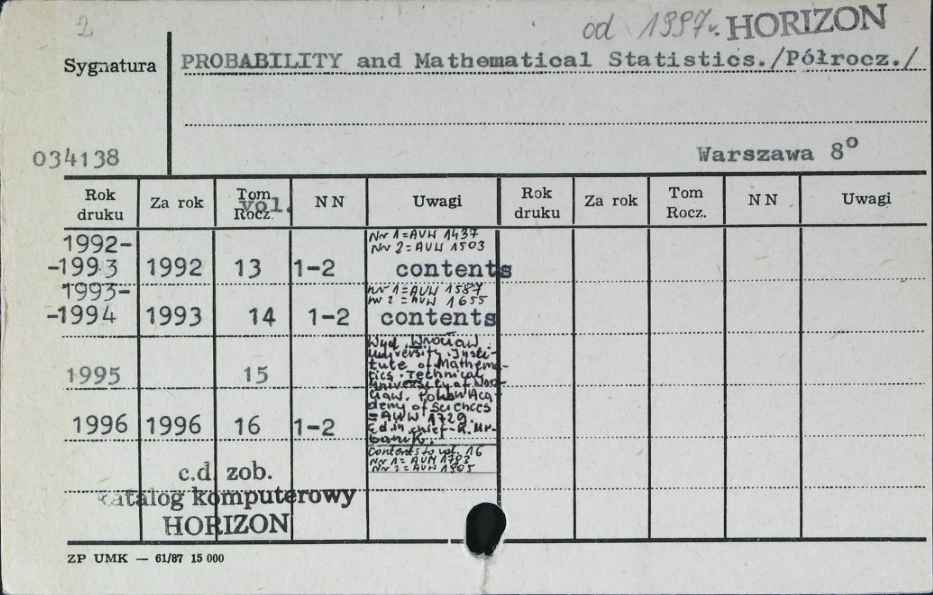 2
od 1997r. HORIZON
Sygnatura
PROBABILITY and Mathematical Statistics./Półrocz./
034138
Warszawa 8°
Rok druku Za rok Tom Rocz. vol. NN Uwagi Rok druku Za rok Tom Rocz. NN Uwagi
Nr 1 = AUW 1437
Nr 2 = AUW 1503
1992-
-1993 1992 13 1-2 contents
Nr 1 = AUW 1587
Nr 2 = AUW 1655
1993-
-1994 1993 14 1-2 contents
1995 15
Wyd. Wrocław
University. Insti-
tute of Mathema-
tics. Technical
University of Wro-
cław. Polish Aca-
demy of Sciences
= AUW 1729.
Ed. in chief - K. Ur-
banik.
1996 1996 16 1-2
Contents to vol. 16
Nr 1 = AUW
Nr 2 = AUW
c.d. zob.
katalog komputerowy
HORIZON
ZP UMK — 61/87 15 000